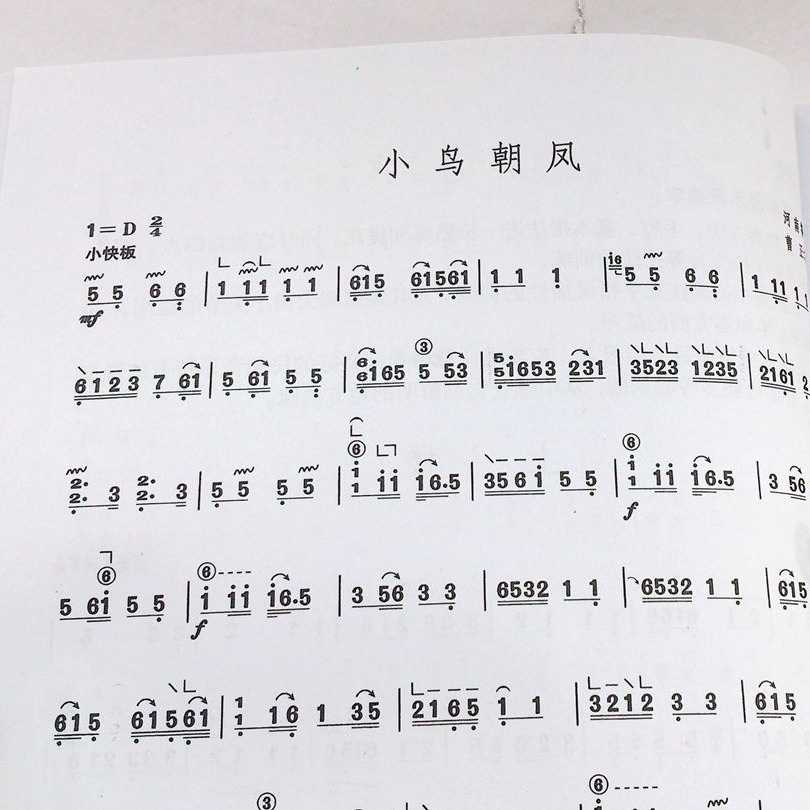 小鸟朝凤
1=D 2/4
小快板
5 5 6 6 | 1 1 1 1 1 | 6 1 5 6 1 5 6 1 | 1 1 1 | i6 5 5 6 6 | 1 1 1 1
mf
6 1 2 3 7 6 1 | 5 6 1 5 5 | 6 6 i 6 5 5 5 3 | 5 5 i 6 5 3 2 3 1 | 3 5 2 3 1 2 3 5 | 2 1 6 1 2
③
2· 2· 3 2· 2· 3 | 5 5 5 5 | i 1 i i i 6·5 | 3 5 6 i 5 5 | i 1 i i i 6·5 | 3 5 6
⑥ ⑥
f
5 6 i 5 5 | i i i i 6·5 | 3 5 6 3 3 | 6 5 3 2 1 1 | 6 5 3 2 1 1 | 6 1 5
⑥ ⑥----
f
6 1 5 6 1 5 6 1 | 1 1 1 6 1 3 5 | 2 1 6 5 1 1 | 3 2 1 2 3 3 | 6 1 5
③ ⑥-----